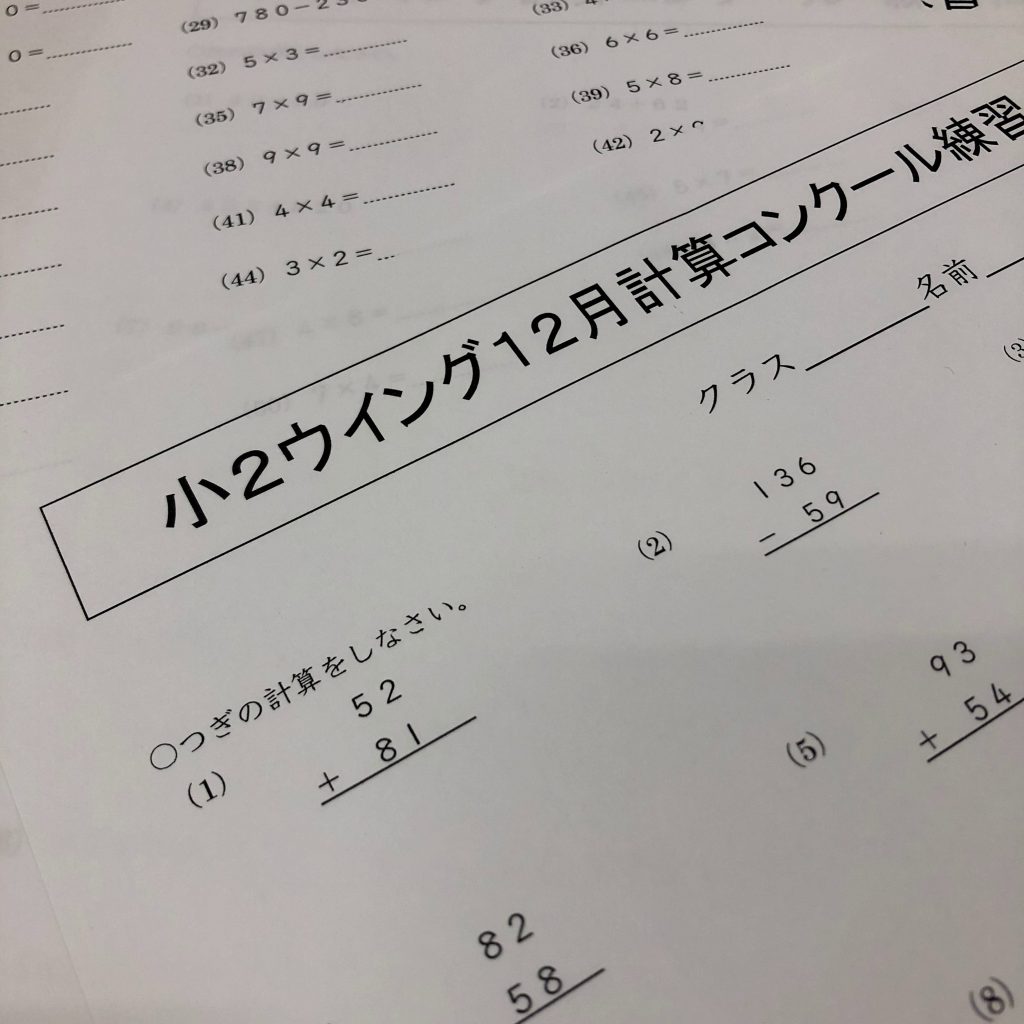 0=
0=
(29) 780-23
(32) 5×3=
(35) 7×9=
(38) 9×9=
(41) 4×4=
(44) 3×2=
(33)
(36) 6×6=
(39) 5×8=
(42) 2×
小2ウイング12月計算コンクール練習
クラス 名前
○つぎの計算をしなさい。
(1)
52
+ 81
(2)
136
- 59
(3)
(5)
93
+ 54
82
58
(8)